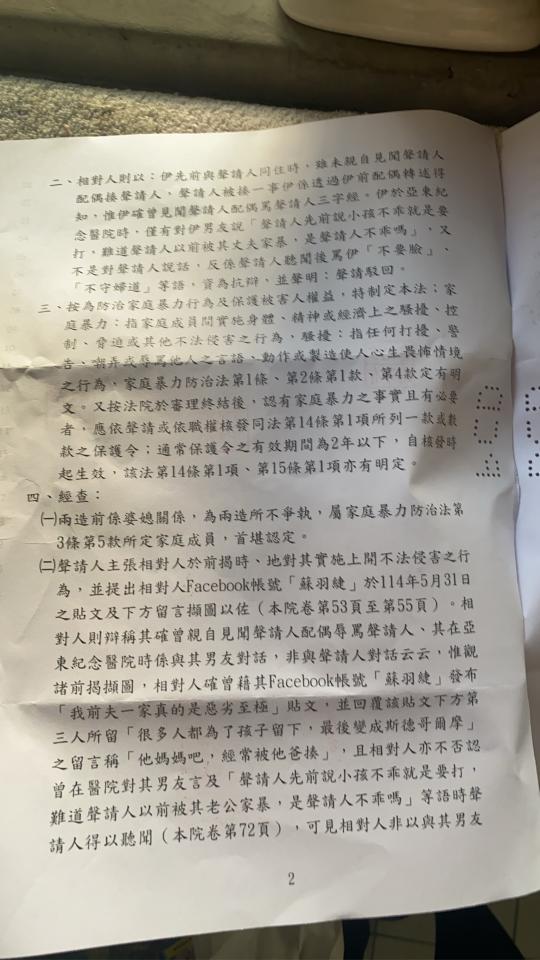 二、相對人則以：伊先前與聲請人同住時，雖未親自見聞聲請人
配偶揍聲請人，聲請人被揍一事伊係透過伊前配偶轉述得
知，惟伊確曾見聞聲請人配偶罵聲請人三字經。伊於亞東紀
念醫院時，僅有對伊男友說「聲請人先前說小孩不乖就是要
打，難道聲請人以前被其丈夫家暴，是聲請人不乖嗎」，又
不是對聲請人說話，反係聲請人聽聞後罵伊「不要臉」、
「不守婦道」等語，資為抗辯。並聲明：聲請駁回。
三、按為防治家庭暴力行為及保護被害人權益，特制定本法；家
庭暴力：指家庭成員間實施身體、精神或經濟上之騷擾、控
制、脅迫或其他不法侵害之行為，騷擾：指任何打擾、警
告、嘲弄或辱罵他人之言語、動作或製造使人心生畏怖情境
之行為，家庭暴力防治法第1條、第2條第1款、第4款定有明
文。又按法院於審理終結後，認有家庭暴力之事實且有必要
者，應依聲請或依職權核發同法第14條第1項所列一款或數
款之保護令；通常保護令之有效期間為2年以下，自核發時
起生效，該法第14條第1項、第15條第1項亦有明定。
四、經查：
㈠兩造前係婆媳關係，為兩造所不爭執，屬家庭暴力防治法第
3條第5款所定家庭成員，首堪認定。
㈡聲請人主張相對人於前揭時、地對其實施上開不法侵害之行
為，並提出相對人Facebook帳號「蘇羽緁」於114年5月31日
之貼文及下方留言擷圖以佐（本院卷第53頁至第55頁）。相
對人則辯稱其確曾親自見聞聲請人配偶辱罵聲請人、其在亞
東紀念醫院時係與其男友對話，非與聲請人對話云云，惟觀
諸前揭擷圖，相對人確曾藉其Facebook帳號「蘇羽緁」發布
「我前夫一家真的是惡劣至極」貼文，並回覆該貼文下方第
三人所留「很多人都為了孩子留下，最後變成斯德哥爾摩」
之留言稱「他媽媽吧，經常被他爸揍」，且相對人亦不否認
曾在醫院對其男友言及「聲請人先前說小孩不乖就是要打，
難道聲請人以前被其老公家暴，是聲請人不乖嗎」等語時聲
請人得以聽聞（本院卷第72頁），可見相對人非以與其男友
2